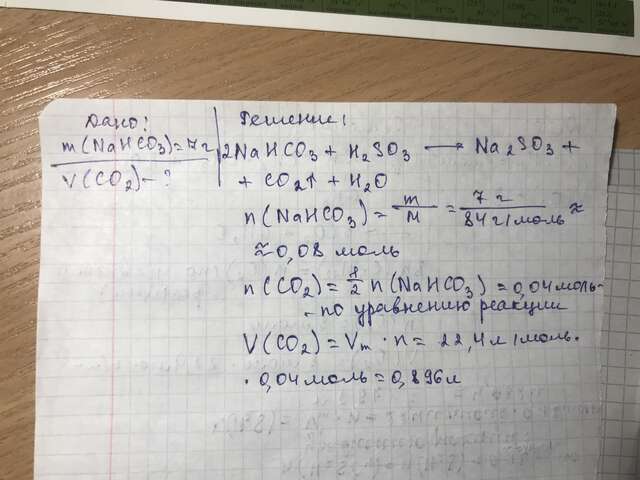 Дано:
m(NaHCO3)=7г
V(CO2)-?
Решение:
2NaHCO3 + H2SO3 → Na2SO3 +
+ CO2↑ + H2O
n(NaHCO3) = m/M = 7г/84г/моль ≈
≈0,08 моль
n(CO2) = 1/2 n(NaHCO3) = 0,04 моль-
-по уравнению реакции
V(CO2) = Vm · n = 22,4 л/моль·
·0,04 моль = 0,896л